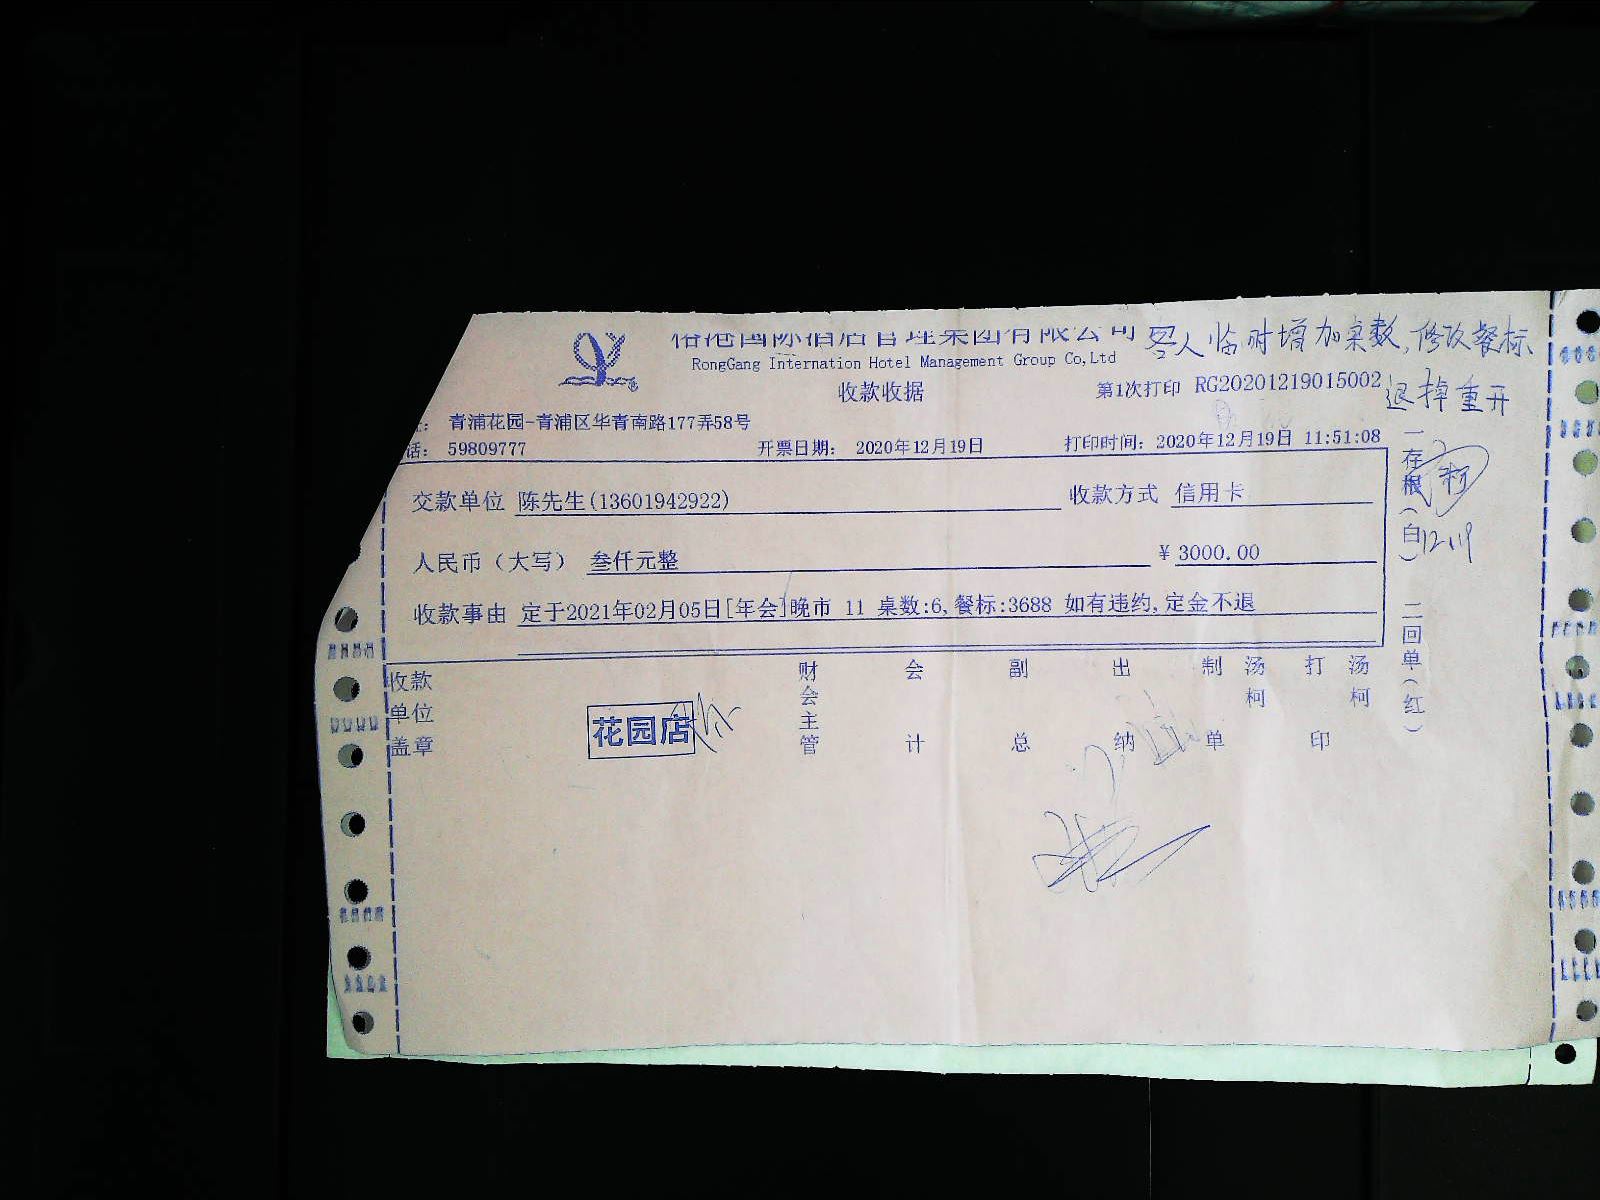 国际酒店管理集团有限公司 客人临时增加桌数,修改餐标
RongGang Internation Hotel Management Group Co,Ltd
收款收据 第1次打印 RG20201219015002 退掉重开
: 青浦花园-青浦区华青南路177弄58号
话: 59809777 开票日期: 2020年12月19日 打印时间: 2020年12月19日 11:51:08
交款单位 陈先生(13601942922) 收款方式 信用卡
人民币(大写) 叁仟元整 ¥3000.00
收款事由 定于2021年02月05日[年会]晚市 11 桌数:6,餐标:3688 如有违约,定金不退
一存根(白) 二回单(红)
12.19
收款单位盖章 花园店 财会主管 会计 副总 出纳 制单 汤柯 打印 汤柯